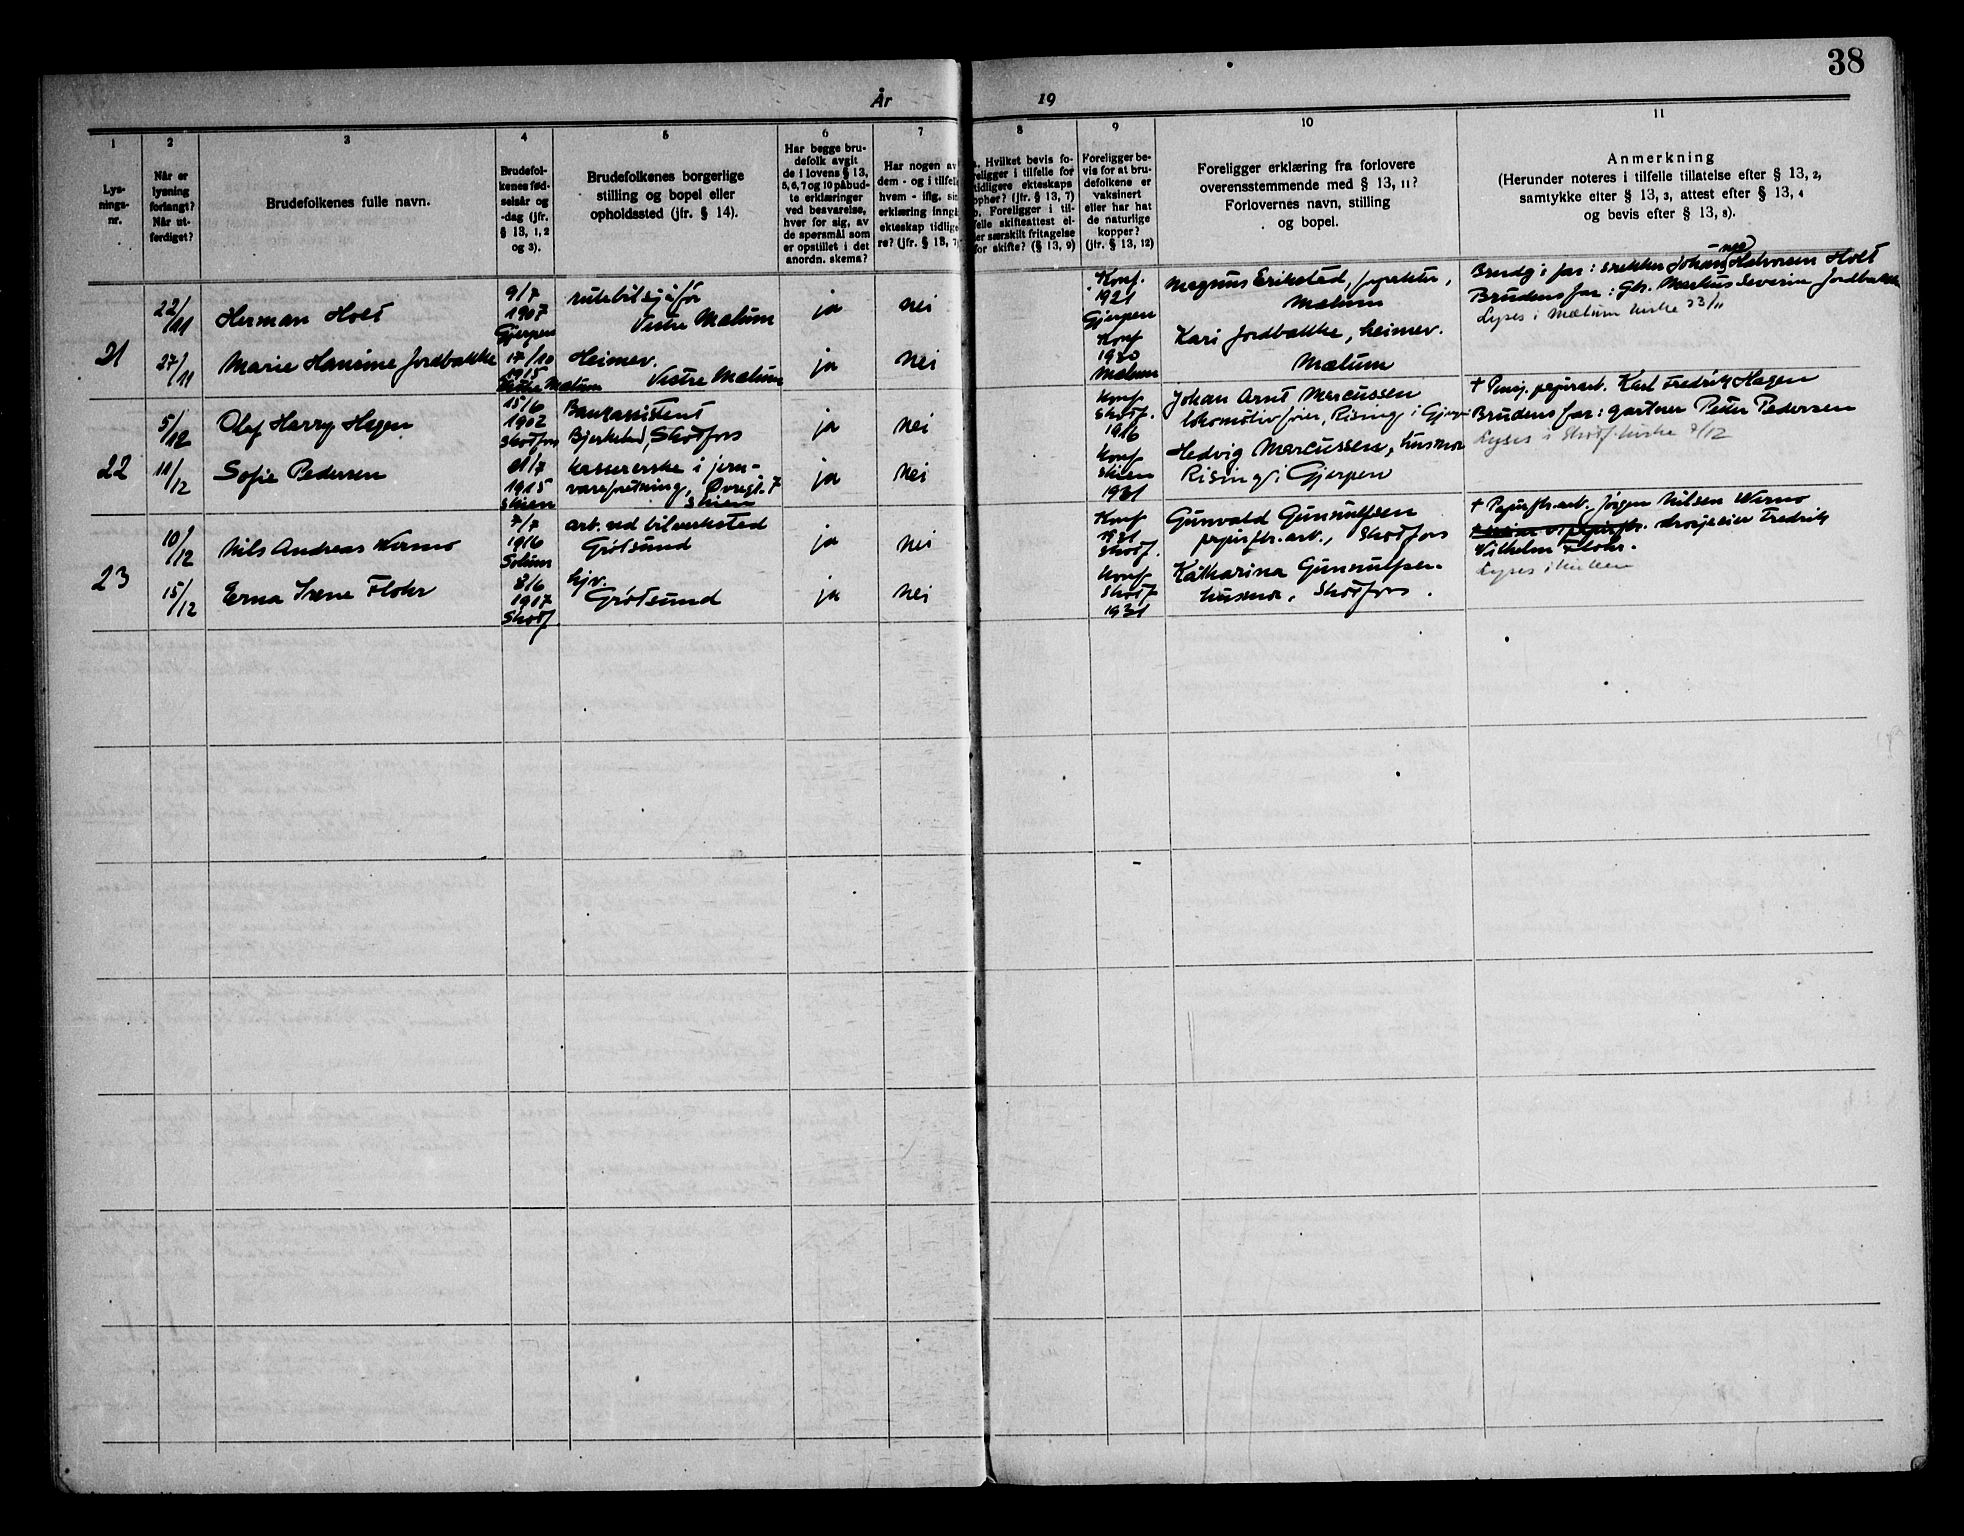 38
År
19
1
2
3
4
5
6
7
8
9
10
11
Lys-
nings-
nr.
Når er
lysning
forlangt?
Når ut-
ferdiget?
Brudefolkenes fulle navn.
Brudefol-
kenes fød-
selsår og
-dag (jfr.
§ 13, 1, 2
og 3).
Brudefolkenes borgerlige
stilling og bopel eller
opholdssted (jfr. § 14).
Har begge bru-
defolk avgit
de i lovens § 13,
5, 6, 7 og 10 påbud-
te erklæringer
ved besvarelse,
hver for sig, av
de spørsmål som
er opstillet i det
anordn. skema?
Har nogen av
dem - og i tilfelle
hvem - iflg. sin
erklæring inngå
ekteskap tidlige
re? (jfr. § 13, 7
Hvilket bevis fo-
religger i tilfelle for
tidligere ekteskaps
ophør? (jfr. § 13, 7)
b. Foreligger i til-
felle skifteattest el-
ler særskilt fritagelse
for skifte? (§ 13, 9)
Foreligger be-
vis for at bru-
defolkene er
vaksinert
eller har hat
de naturlige
kopper?
(jfr. § 13, 12)
Foreligger erklæring fra forlovere
overensstemmende med § 13, 11?
Forlovernes navn, stilling
og bopel.
Anmerkning
(Herunder noteres i tilfelle tillatelse efter § 13, 2,
samtykke efter § 13, 3, attest efter § 13, 4
og bevis efter § 13, 8).
21
22/11
Herman Holt
9/7
1907
Gjerpen
rutebilsjåfør
Vestre Mælum
ja
nei
Konf.
1921
Gjerpen
Magnus Erikstad,
Mælum
Brudg's far: Johan Halvorsen Holt
27/11
Marie Hansine Jordbakke
17/10
1915
Vestre Mælum
Heimev.
Vestre Mælum
ja
nei
Konf
1930
Mælum
Kari Jordbakke, heimev.
Mælum
Brudens far: Gbr. Markus Severin Jordbakke
Lyses i Mælum kirke 23/11
22
5/12
Olaf Harry Hagen
15/6
1902
Skotfoss
Bankassistent
Bjerkelad, Skotfoss
ja
nei
Konf
Skotf.
1916
Johan Arnt Marcussen
lokomotivfører, Rising i Gjerpen
+ Pens. papirarb. Karl Fredrik Hagen
11/12
Sofie Pedersen
21/7
1915
Skien
kassererske i jern-
vareforretning, Øvregt. 7
Skien
ja
nei
Konf
Skien
1931
Hedvig Marcussen, husmor
Rising i Gjerpen
Brudens far: gartner Peter Pedersen
Lyses i Skotf. kirke 7/12
23
10/12
Nils Andreas Wermo
7/7
1916
Solum
arb. ved bilverksted
Grøtsund
ja
nei
Konf
1931
Skotf.
Gunvald Gunnulfsen
papirfbr. arb., Skotfoss
+ Papirfbr. arb. Jørgen Nilsen Wermo
15/12
Erna Irene Flohr
8/6
1917
Skotf
hjv.
Grøtsund
ja
nei
Konf
Skotf
1931
Katharina Gunnulfsen
husmor, Skotfoss.
drosjeeier Fredrik
Wilhelm Flohr.
Lyses i kirken